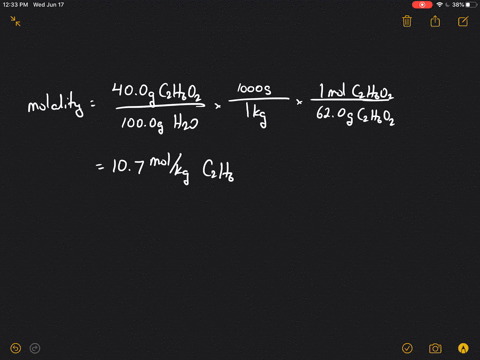 12:33 PM Wed Jun 17 38%
molality = 40.0g C2H6O2 / 100.0g H2O × 1000g / 1kg × 1 mol C2H6O2 / 62.0g C2H6O2
= 10.7 mol/kg C2H6